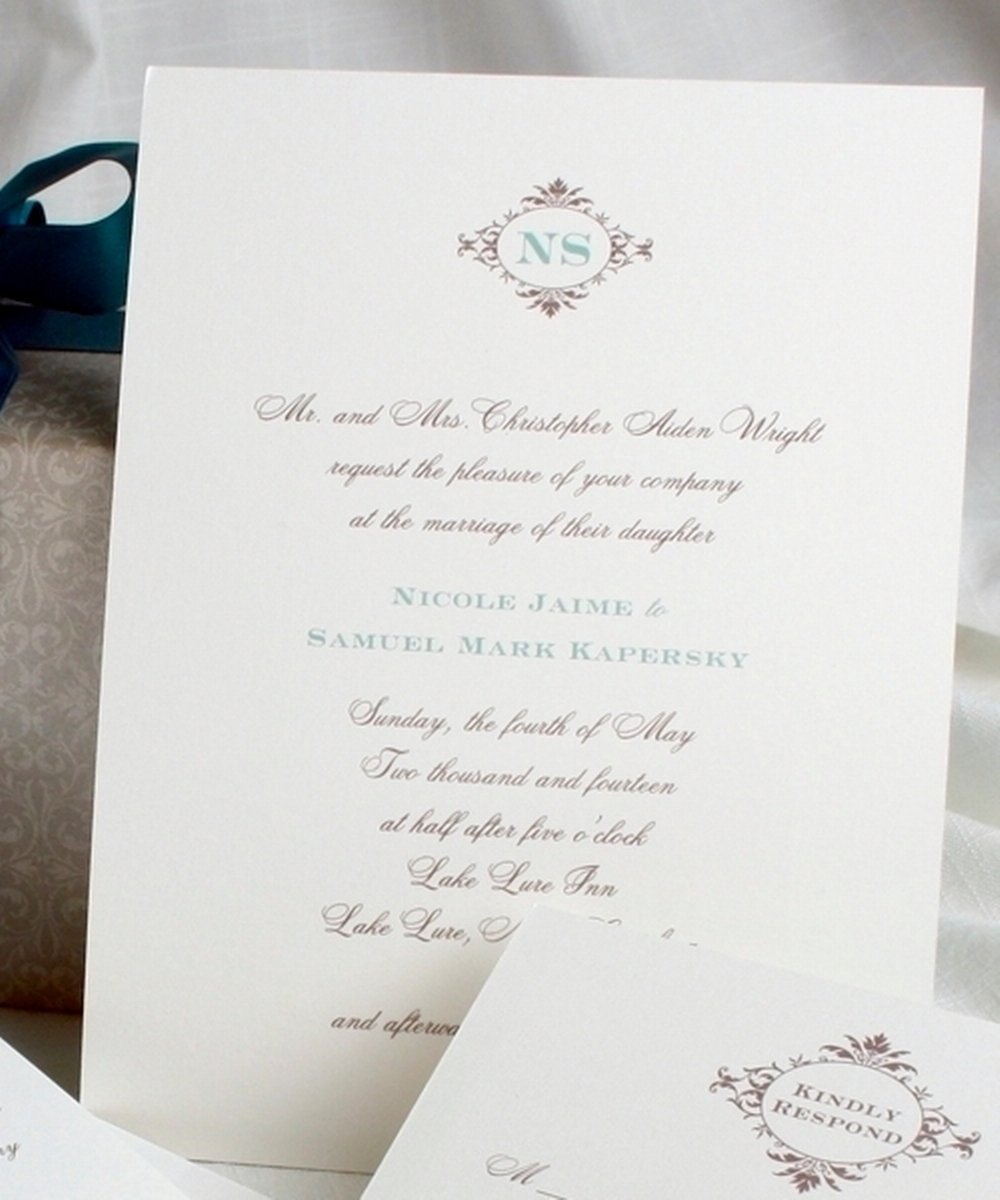 NS
Mr. and Mrs. Christopher Aiden Wright
request the pleasure of your company
at the marriage of their daughter
NICOLE JAIME to
SAMUEL MARK KAPERSKY
Sunday, the fourth of May
Two thousand and fourteen
at half after five o'clock
Lake Lure Inn
Lake Lure,
and
KINDLY
RESPOND
M